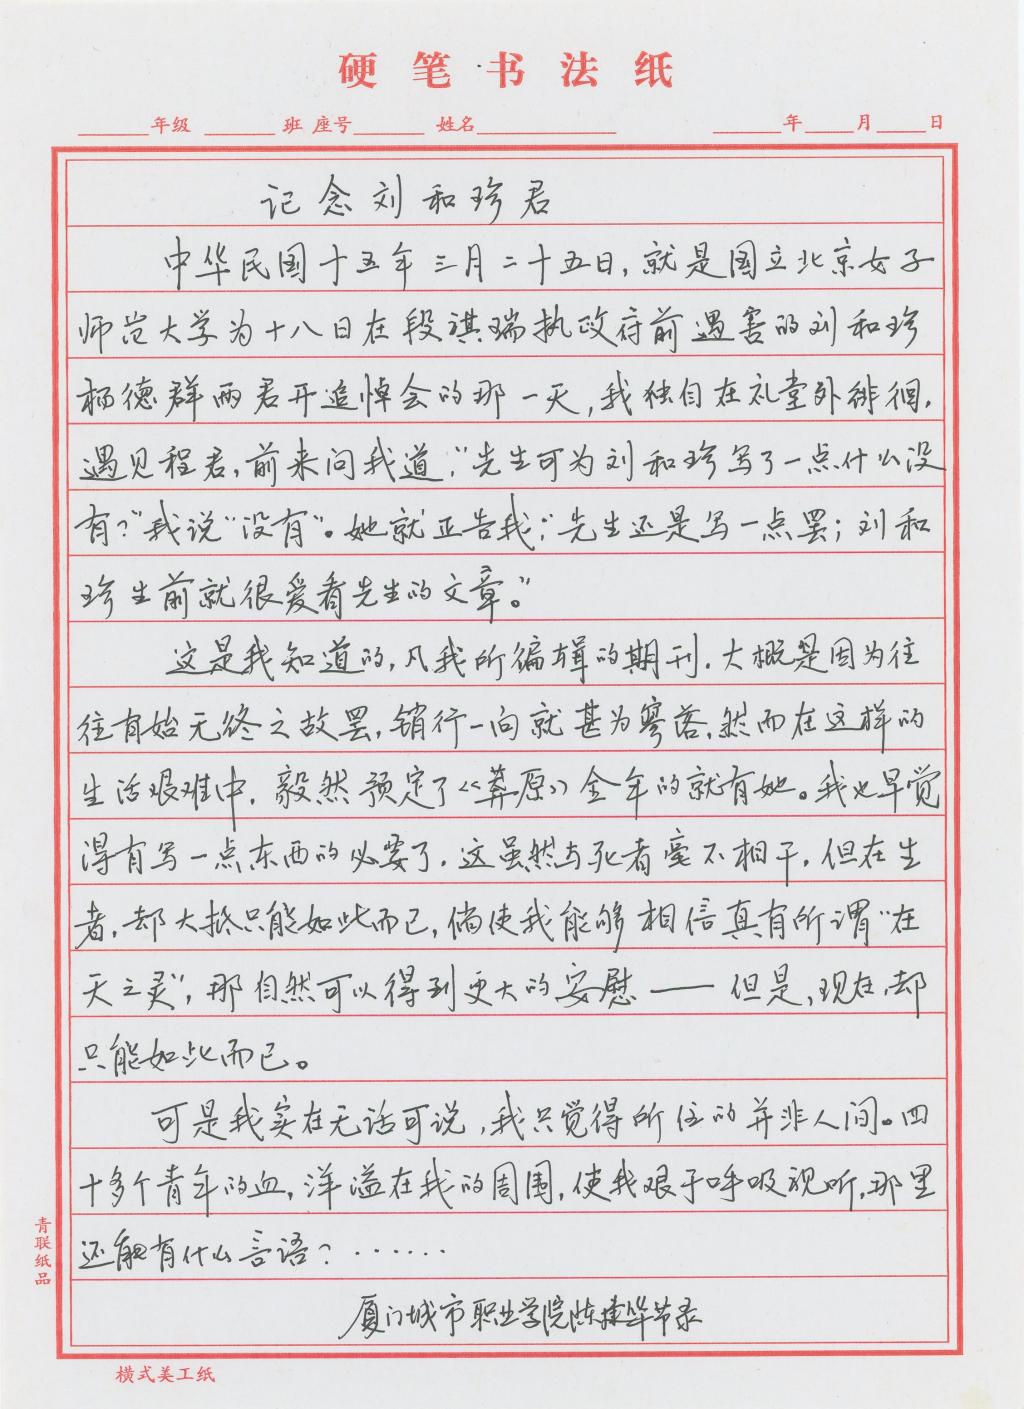 硬笔书法纸
年级 班 座号 姓名 年 月 日
记念刘和珍君
中华民国十五年三月二十五日，就是国立北京女子
师范大学为十八日在段祺瑞执政府前遇害的刘和珍
杨德群两君开追悼会的那一天，我独自在礼堂外徘徊，
遇见程君，前来问我道，“先生可为刘和珍写了一点什么没
有？”我说“没有”。她就正告我，“先生还是写一点罢；刘和
珍生前就很爱看先生的文章。”
这是我知道的，凡我所编辑的期刊，大概是因为往
往有始无终之故罢，销行一向就甚为寥落，然而在这样的
生活艰难中，毅然预定了《莽原》全年的就有她。我也早觉
得有写一点东西的必要了，这虽然与死者毫不相干，但在生
者，却大抵只能如此而已，倘使我能够相信真有所谓“在
天之灵”，那自然可以得到更大的安慰——但是，现在，却
只能如此而已。
可是我实在无话可说，我只觉得所住的并非人间。四
十多个青年的血，洋溢在我的周围，使我艰于呼吸视听，那里
还能有什么言语？……
厦门城市职业学院陈 华节录
青联纸品
横式美工纸